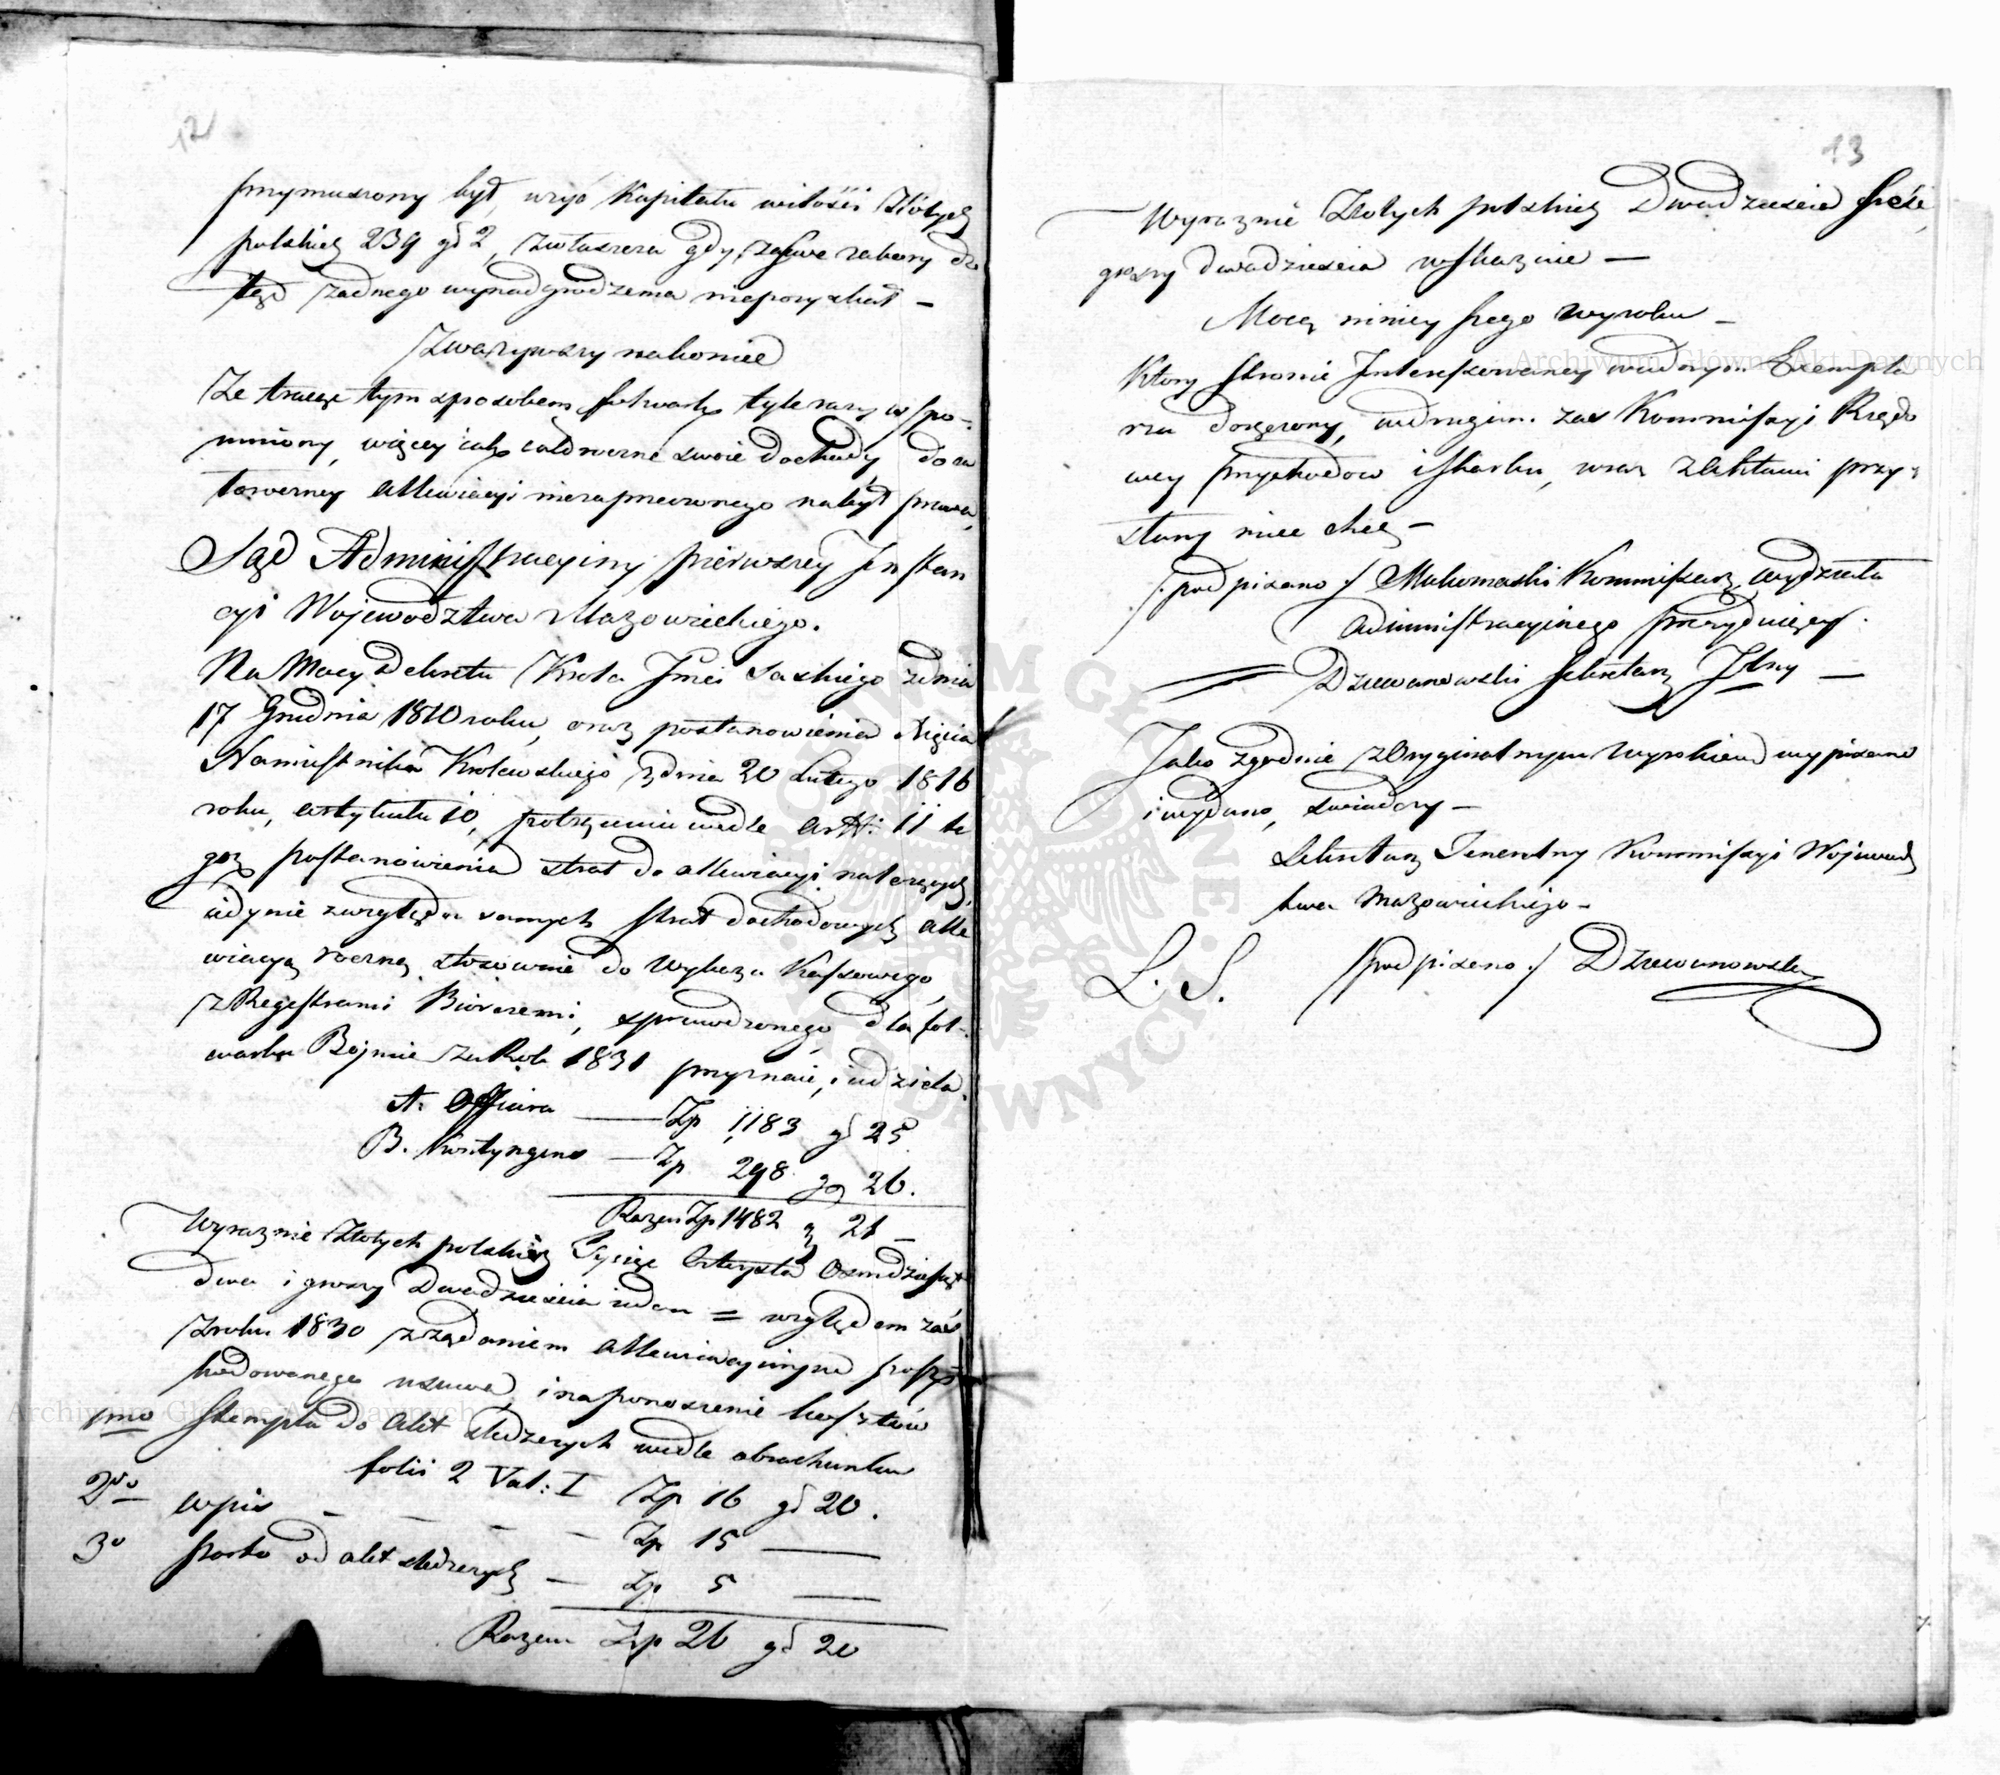 12
przymuszony był, wziąć Kapitału wilości Złotych
polskich 239 gr 2, zwłaszcza gdy zasiwe zabory do
tąd żadnego wynadgrodzenia niepozyskał —
Zważywszy nakoniec
Że tracąc tym sposobem folwark tyle razy wspo-
mniony, więcey iak całoroczne swoie dochody do ca
łoroczney allewiacyi niezaprzeczonego nabył prawa,
Sąd Administracyiny pierwszey Instan
cyi Województwa Mazowieckiego.
Na Mocy Dekretu Króla Jmci Saskiego zdnia
17 Grudnia 1810 roku, oraz postanowienia Xięcia
Namiestnika Królewskiego zdnia 20 Lutego 1816
roku, artykułu 10, potrąceniu wedle Artt: 11 te
goż postanowienia strat do allewiacyi należących,
iedynie zwzględu samych strat dochodowych alle
wiacyą roczną stosownie do Wykazu Kassowego
z Regestrami Biorczemi, sprawdzonego, dla fol-
warku Bojmie za Rok 1831 przyznaie, i udziela.
A. Offiara — Zp 1183 gr 25
B. Kontyngens — Zp 298 gr 26.
Razem Zp 1482 gr 21 —
Wyraznie Złotych polskich Tysiąc Czterysta Osmdziesiąt
dwa i groszy Dwadzieścia ieden = względem zaś
Zroku 1830 z żądaniem allewiacyinym poszko
dowanego usuwa, i na ponoszenie kosztów
1mo Stempla do akt śledczych wedle obrachunku
folii 2 Vol: I Zp 16 gr 20.
2do wpis — — — — Zp 15 —
3o porto od akt śledczych — Zp 5 —
Razem Zp 26 gr 20
13
Wyraznie Złotych polskich Dwadzieścia sześć,
groszy dwadzieścia wskazuie —
Mocą ninieyszego wyroku —
Który stronie Interessowaney wiednym Exempla
rzu doręczony, wdrugim zaś Kommissyi Rządo
wey Przychodów i Skarbu, wraz z Aktami przy-
słany mieć chce —
/: podpisano :/ Makomaski Kommissarz wydziału
Administracyinego prezyduiący.
= Dziewanowski Sekretarz Jlny —
Jako zgodnie z Oryginalnym Wyrokiem wypisano
i wydano, świadczy —
Sekretarz Jeneralny Kommissyi Wojewódz
twa Mazowieckiego —
L. S. /podpisano :/ Dziewanowski
Archiwum Główne Akt Dawnych
Archiwum Główne Akt Dawnych
ARCHIWUM GŁÓWNE AKT DAWNYCH